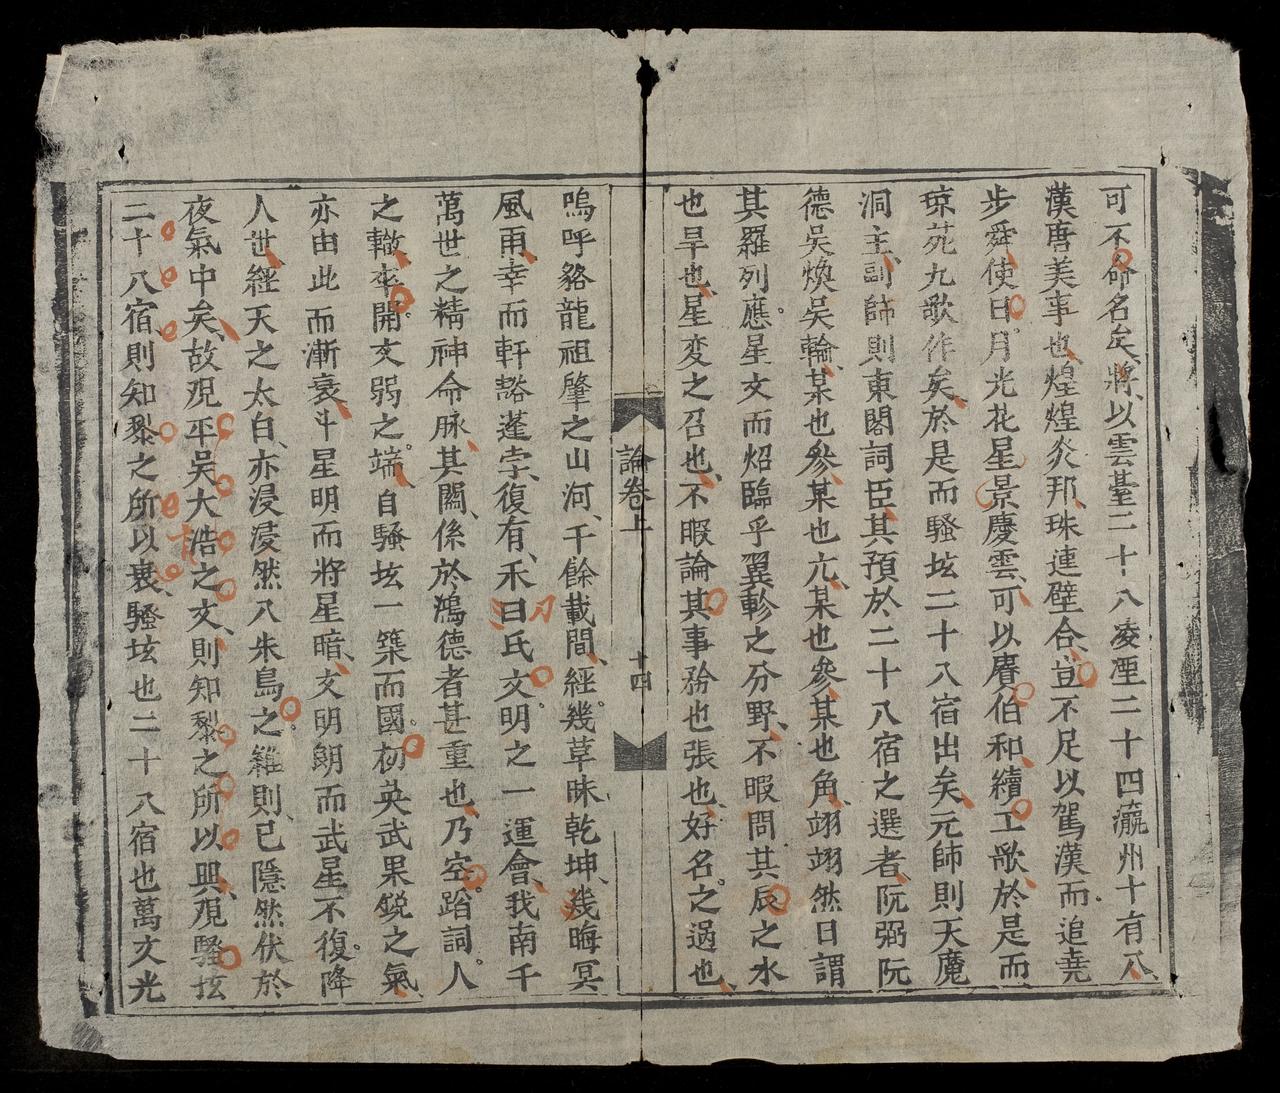 可不命名矣將以雲臺二十八凌烟二十四瀛州十有八
漢唐美事也煌煌炎邦珠連壁合豈不足以駕漢而追堯
步舜使日月光花星景慶雲可以賡伯和續工歌於是而
琼苑九歌作矣於是而騷坛二十八宿出矣元帥則天魔
洞主副帥則東閣詞臣其預於二十八宿之選者阮弼阮
德吳煥吳輪某也參某也亢某也參某也角翊翊然日謂
其羅列應星文而炤臨乎翼軫之分野不暇問其辰之水
也旱也星変之召也不暇論其事務也張也好名之過也
論卷上
十四
嗚呼貉龍祖肇之山河千餘載間經幾草昧乾坤幾晦冥
風雨幸而軒豁蓬孛復有禾曰氏文明之一運會我南千
萬世之精神命脉其關係於鴻德者甚重也乃空跆詞人
之轍卒開文弱之端自騷坛一築而國初英武果鋭之氣
亦由此而漸衰斗星明而將星暗文明朗而武星不復降
人世經天之太白亦浸浸然入朱鳥之雞則已隱然伏於
夜氣中矣故覌平吳大浩之文則知黎之所以興覌騷坛
二十八宿則知黎之所以衰騷坛也二十八宿也萬文光